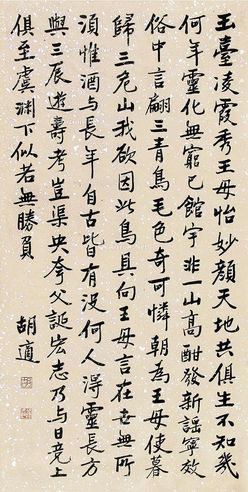 玉臺凌霞秀王母怡妙顏天地共俱生不知幾
何年靈化無窮已館宇非一山高酣發新謠寧效
俗中言翩三青鳥毛色奇可憐朝為王母使暮
歸三危山我欲因此鳥具向王母言在世無所
須惟酒与長年自古皆有沒何人得靈長方
與三辰遊壽考豈渠央夸父誕宏志乃与日竞走
俱至虞淵下似若無勝負
胡適